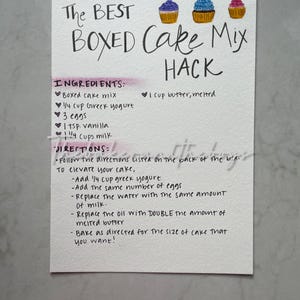 The BEST
BOXED Cake Mix
HACK
INGREDIENTS:
♥ Boxed cake mix ♥ 1 cup butter, melted
♥ 1/4 cup Greek yogurt
♥ 3 eggs
♥ 1 tsp vanilla
♥ 1 1/4 cups milk
DIRECTIONS:
- Follow the directions listed on the back of the box
To elevate your cake,
- Add 1/4 cup greek yogurt
- Add the same number of eggs
- Replace the water with the same amount
of milk
- Replace the oil with DOUBLE the amount of
melted butter
- Bake as directed for the size of cake that
you want!